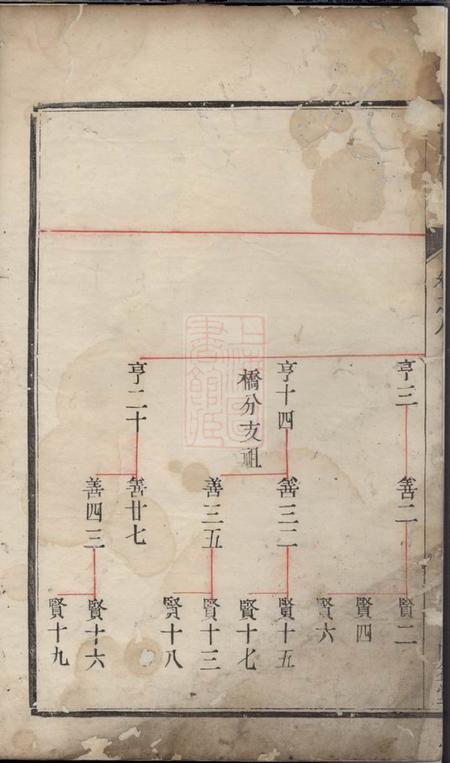 亨三
亨十四
橋分支祖
亨二十
善二
善三二
善三五
善廿七
善四三
賢二
賢四
賢六
賢十五
賢十七
賢十三
賢十八
賢十六
賢十九
上海圖
書館藏